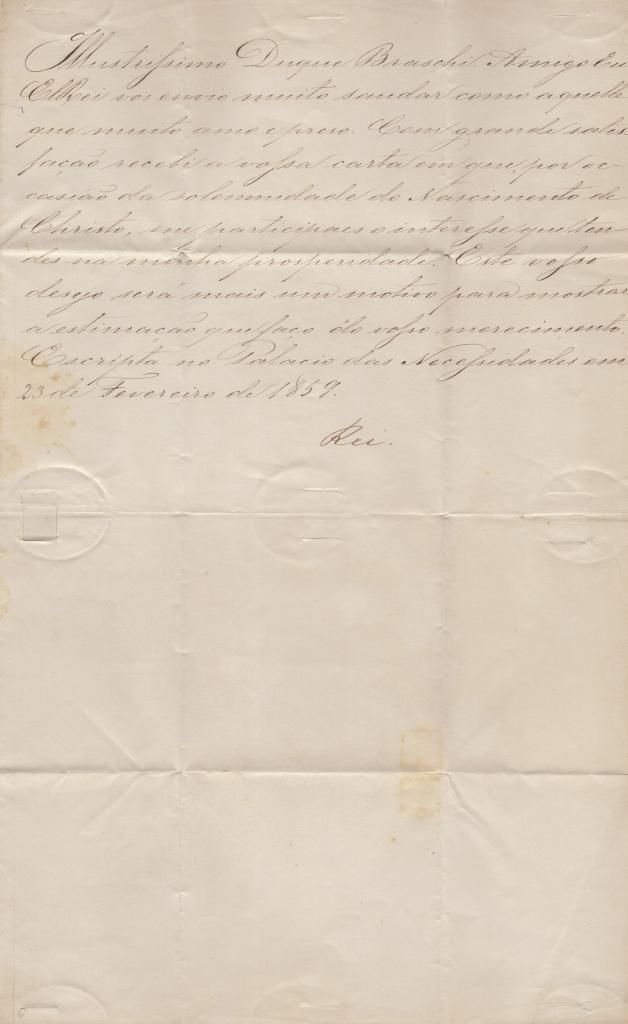 Illustrissimo Duque Braschi Amigo Eu
ElRei vos envio muito saudar como aquelle
que muito amo e preso. Com grande satis
fação recebi a vossa carta em que, por oc-
casião da solemnidade do Nascimento de
Christo, me participaes o interesse que ten-
des na minha prosperidade. Este vosso
desejo será mais um motivo para mostrar
a estimação que faço do vosso merecimento.
Escripta no Palacio das Necessidades em
23 de Fevereiro de 1859.
Rei.